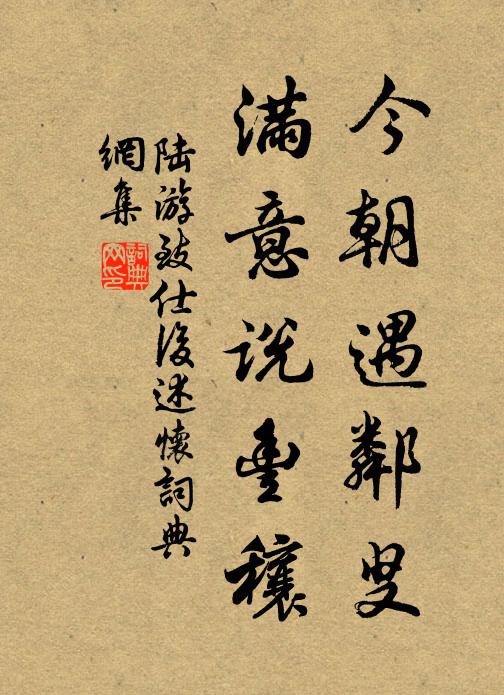 今朝遇鄰叟
滿意說豐穰
陸游致仕後述懷詞典
網集
詞典
網印